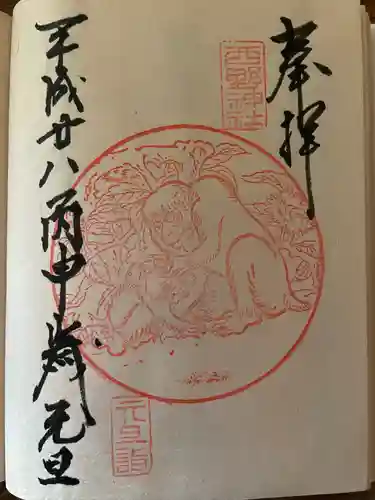 奉拝
西野神社
平成廿八丙申歳元旦
元旦詣